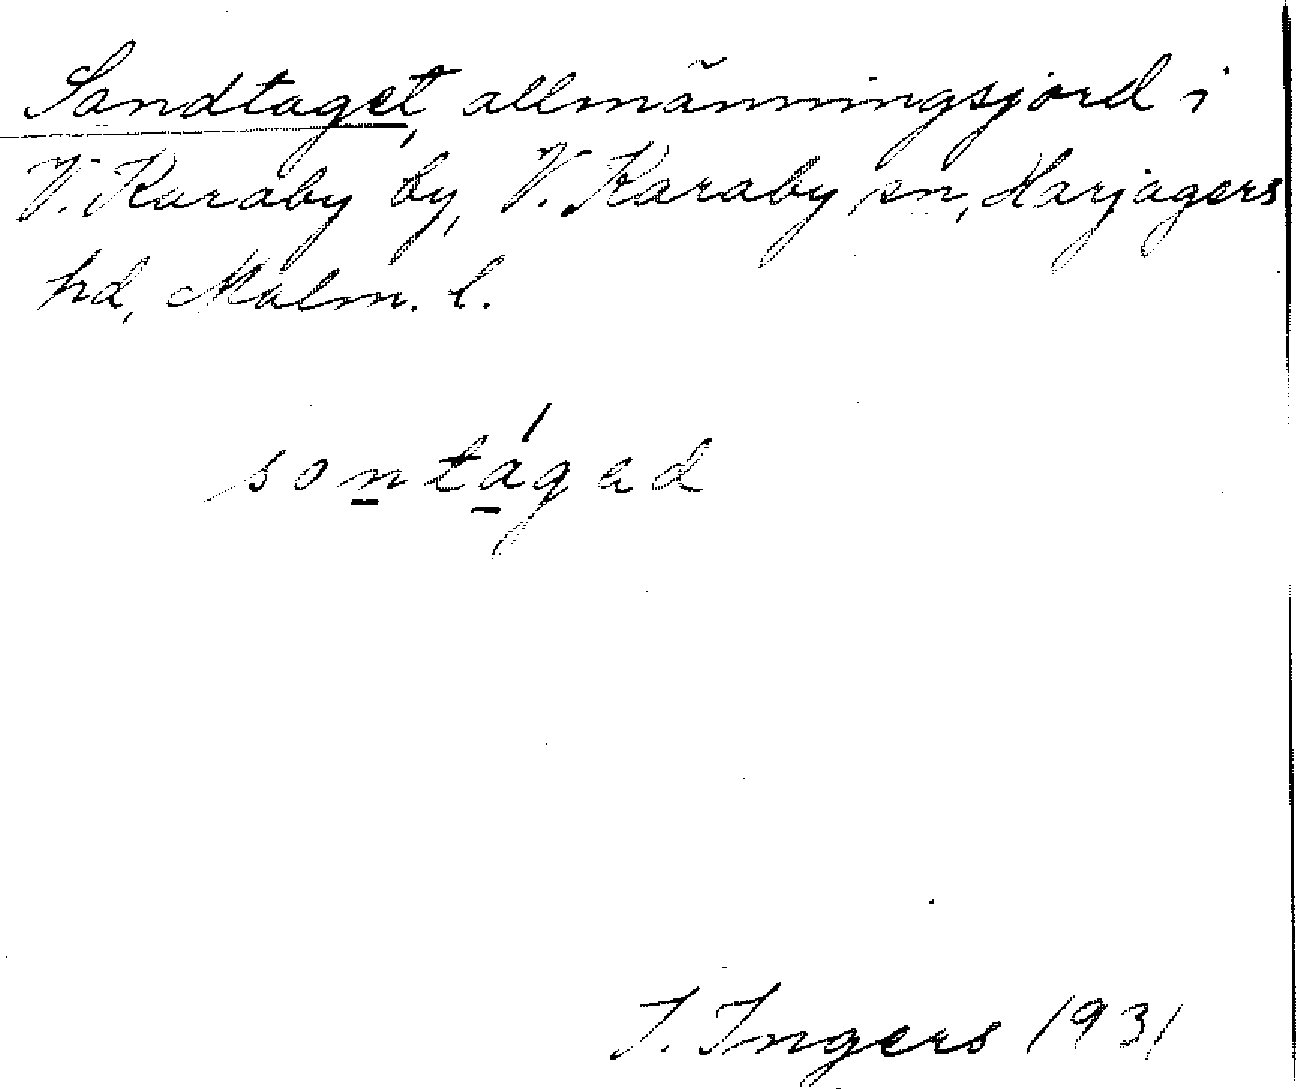 Sandtaget, allmänningsjord i
V. Karaby by, V. Karaby sn, Harjagers
hd, Malm. l.
sontágad
I. Ingers 1931